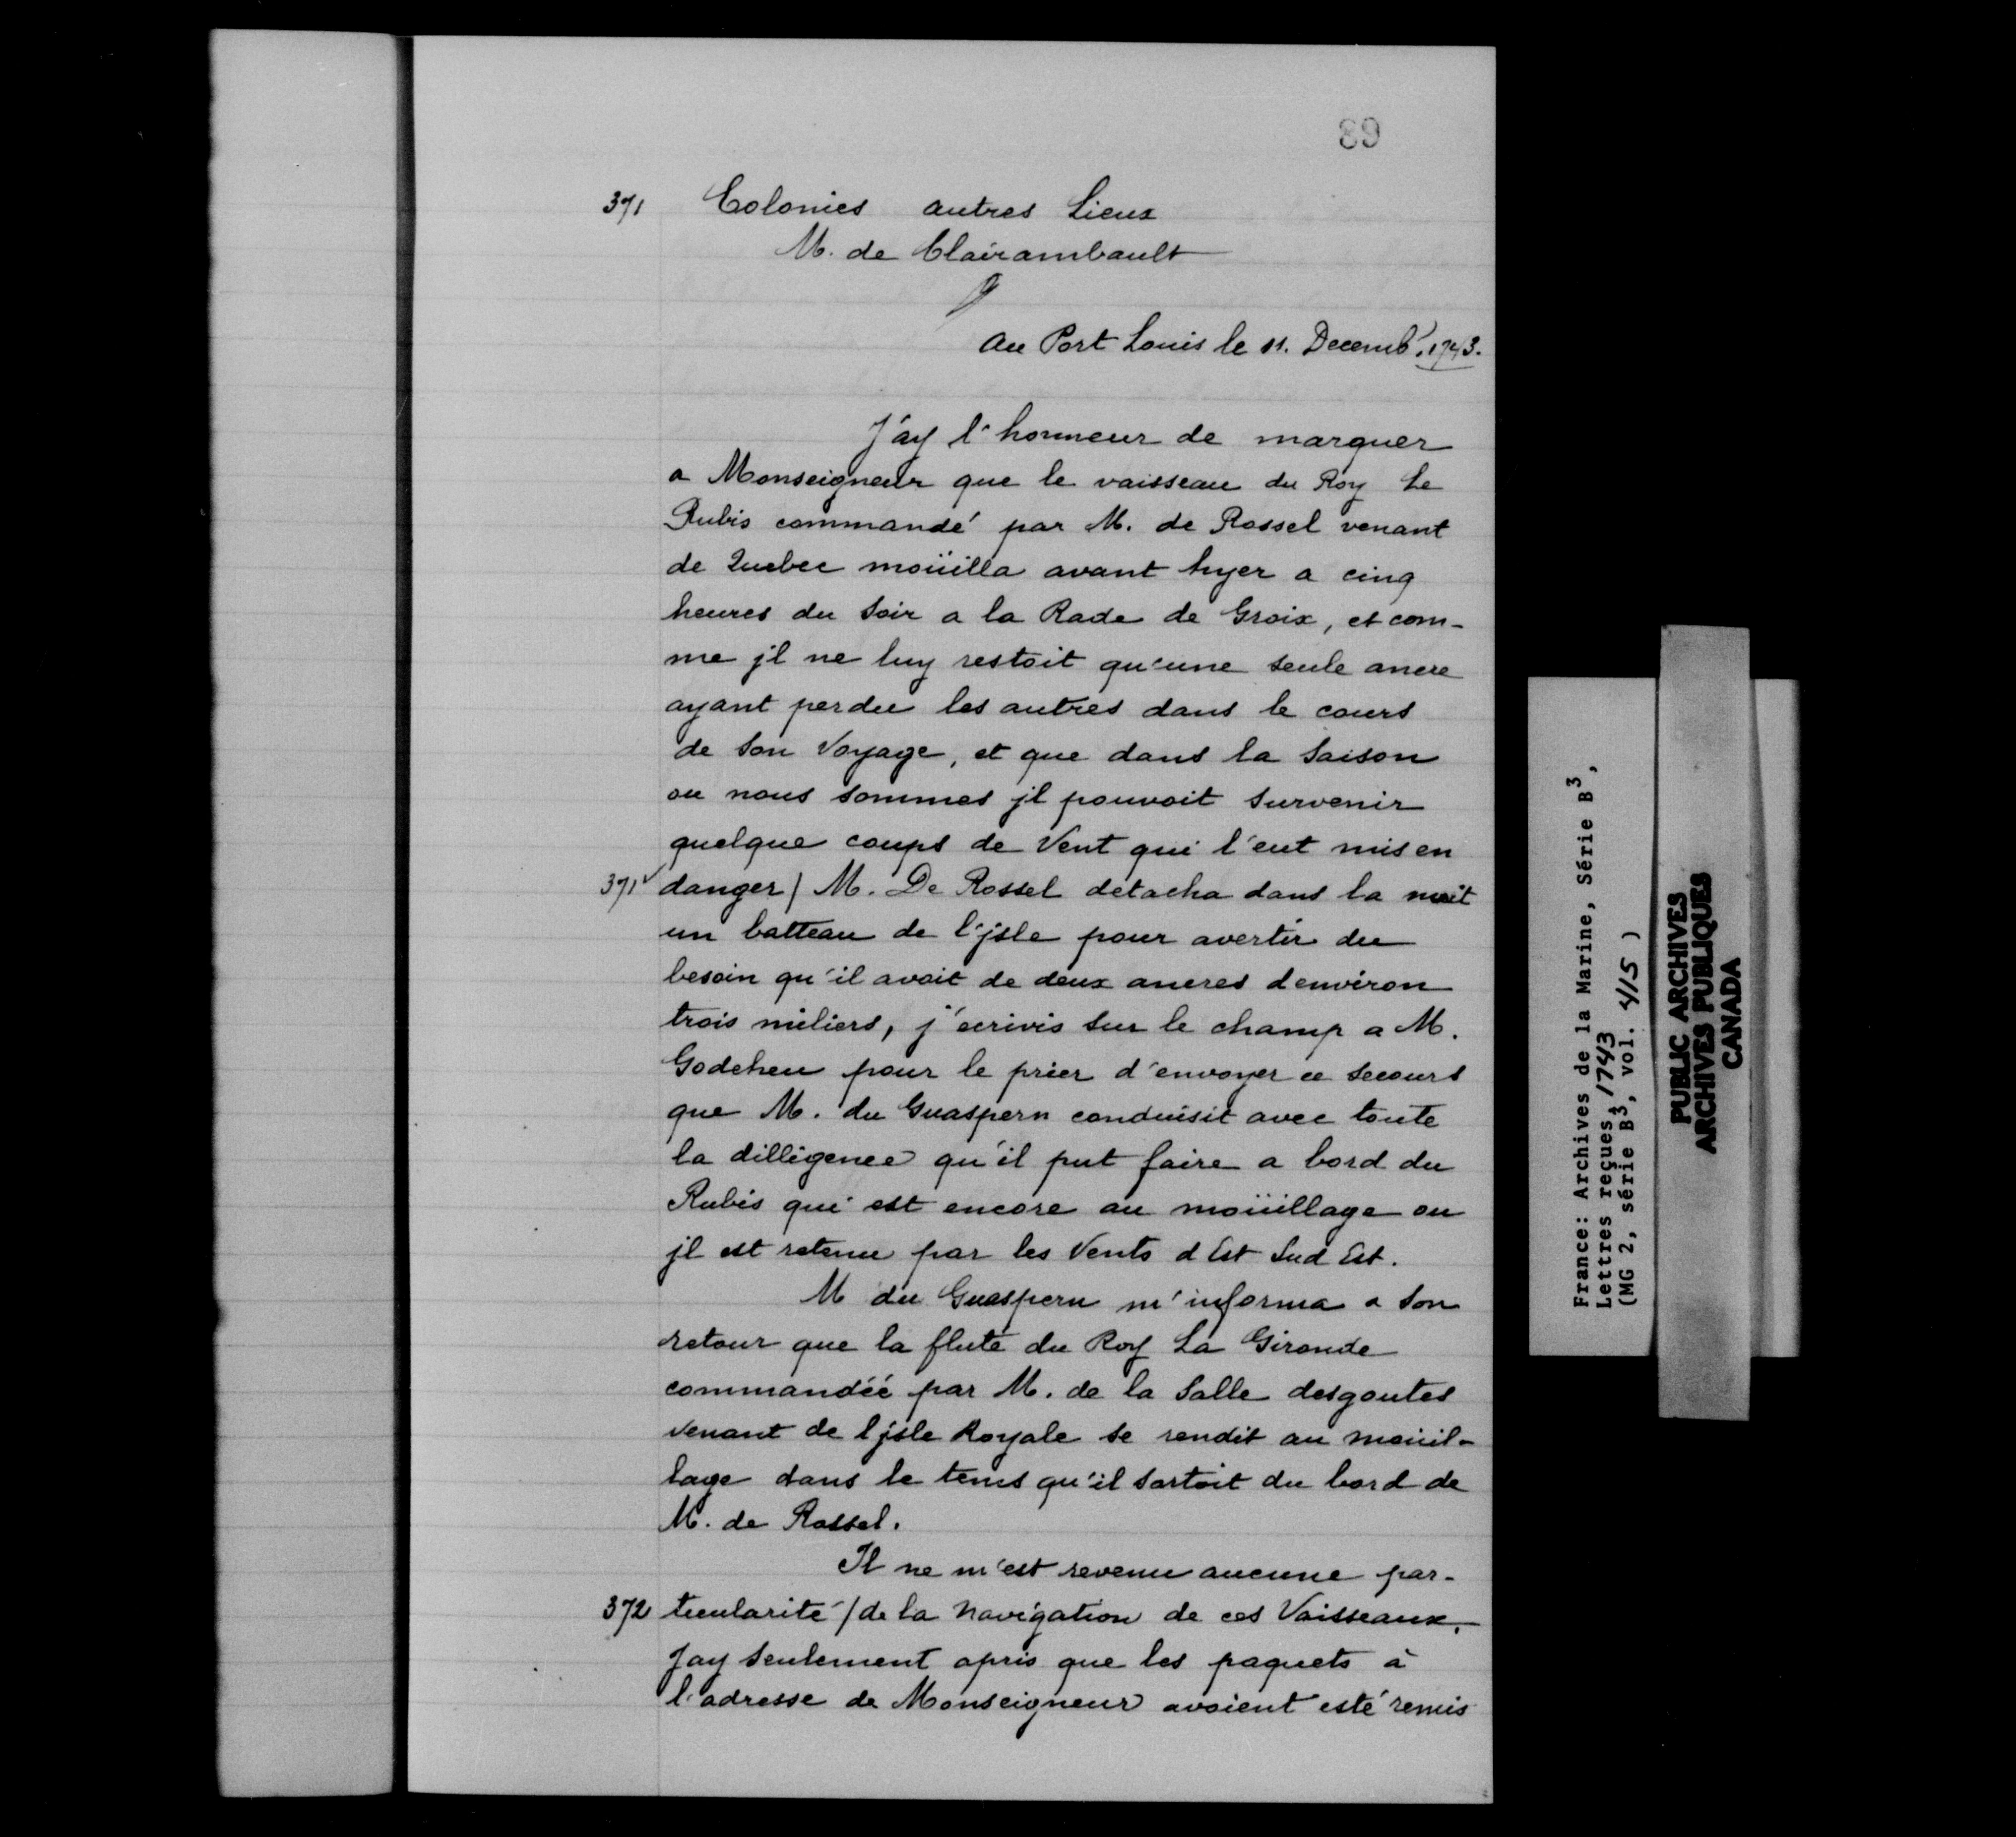 89
371 Colonies autres Lieux
M. de Clairambault
au Port Louis le 11. Decemb.r 1743.
J'ay l'honneur de marquer
a Monseigneur que le vaisseau du Roy Le
Rubis commandé par M. de Rossel venant
de Quebec moüilla avant hyer a cinq
heures du Soir a la Rade de Groix, et com-
me jl ne luy restoit qu'une seule ancre
ayant perdu les autres dans le cours
de son Voyage, et que dans la Saison
ou nous sommes jl pouvoit survenir
quelque coups de Vent qui l'eut mis en
371v danger / M. De Rossel détacha dans la nuit
un batteau de l'jsle pour avertir du
besoin qu'il avoit de deux ancres denviron
trois miliers, j'ecrivis sur le champ a M.
Godeheu pour le prier d'envoyer ce secours
que M. du Guaspern conduisit avec toute
la dilligence qu'il put faire a bord du
Rubis qui est encore au moüillage ou
jl est retenu par les Vents d Est Sud Est.
M du Guaspern m'informa a son
retour que la flute du Roy La Gironde
commandéé par M. de la Salle desgoutes
venant de l'jsle Royale se rendit au moüil-
lage dans le tems qu'il sortoit du bord de
M. de Rossel.
Il ne m'est revenu aucune par-
372 ticularité / de la navigation de ces Vaisseaux.
Jay seulement apris que les paquets à
l'adresse de Monseigneur avoient esté remis
France: Archives de la Marine, Série B3,
Lettres reçues, 1743
(MG 2, série B3, vol. 415 )
PUBLIC ARCHIVES
ARCHIVES PUBLIQUES
CANADA